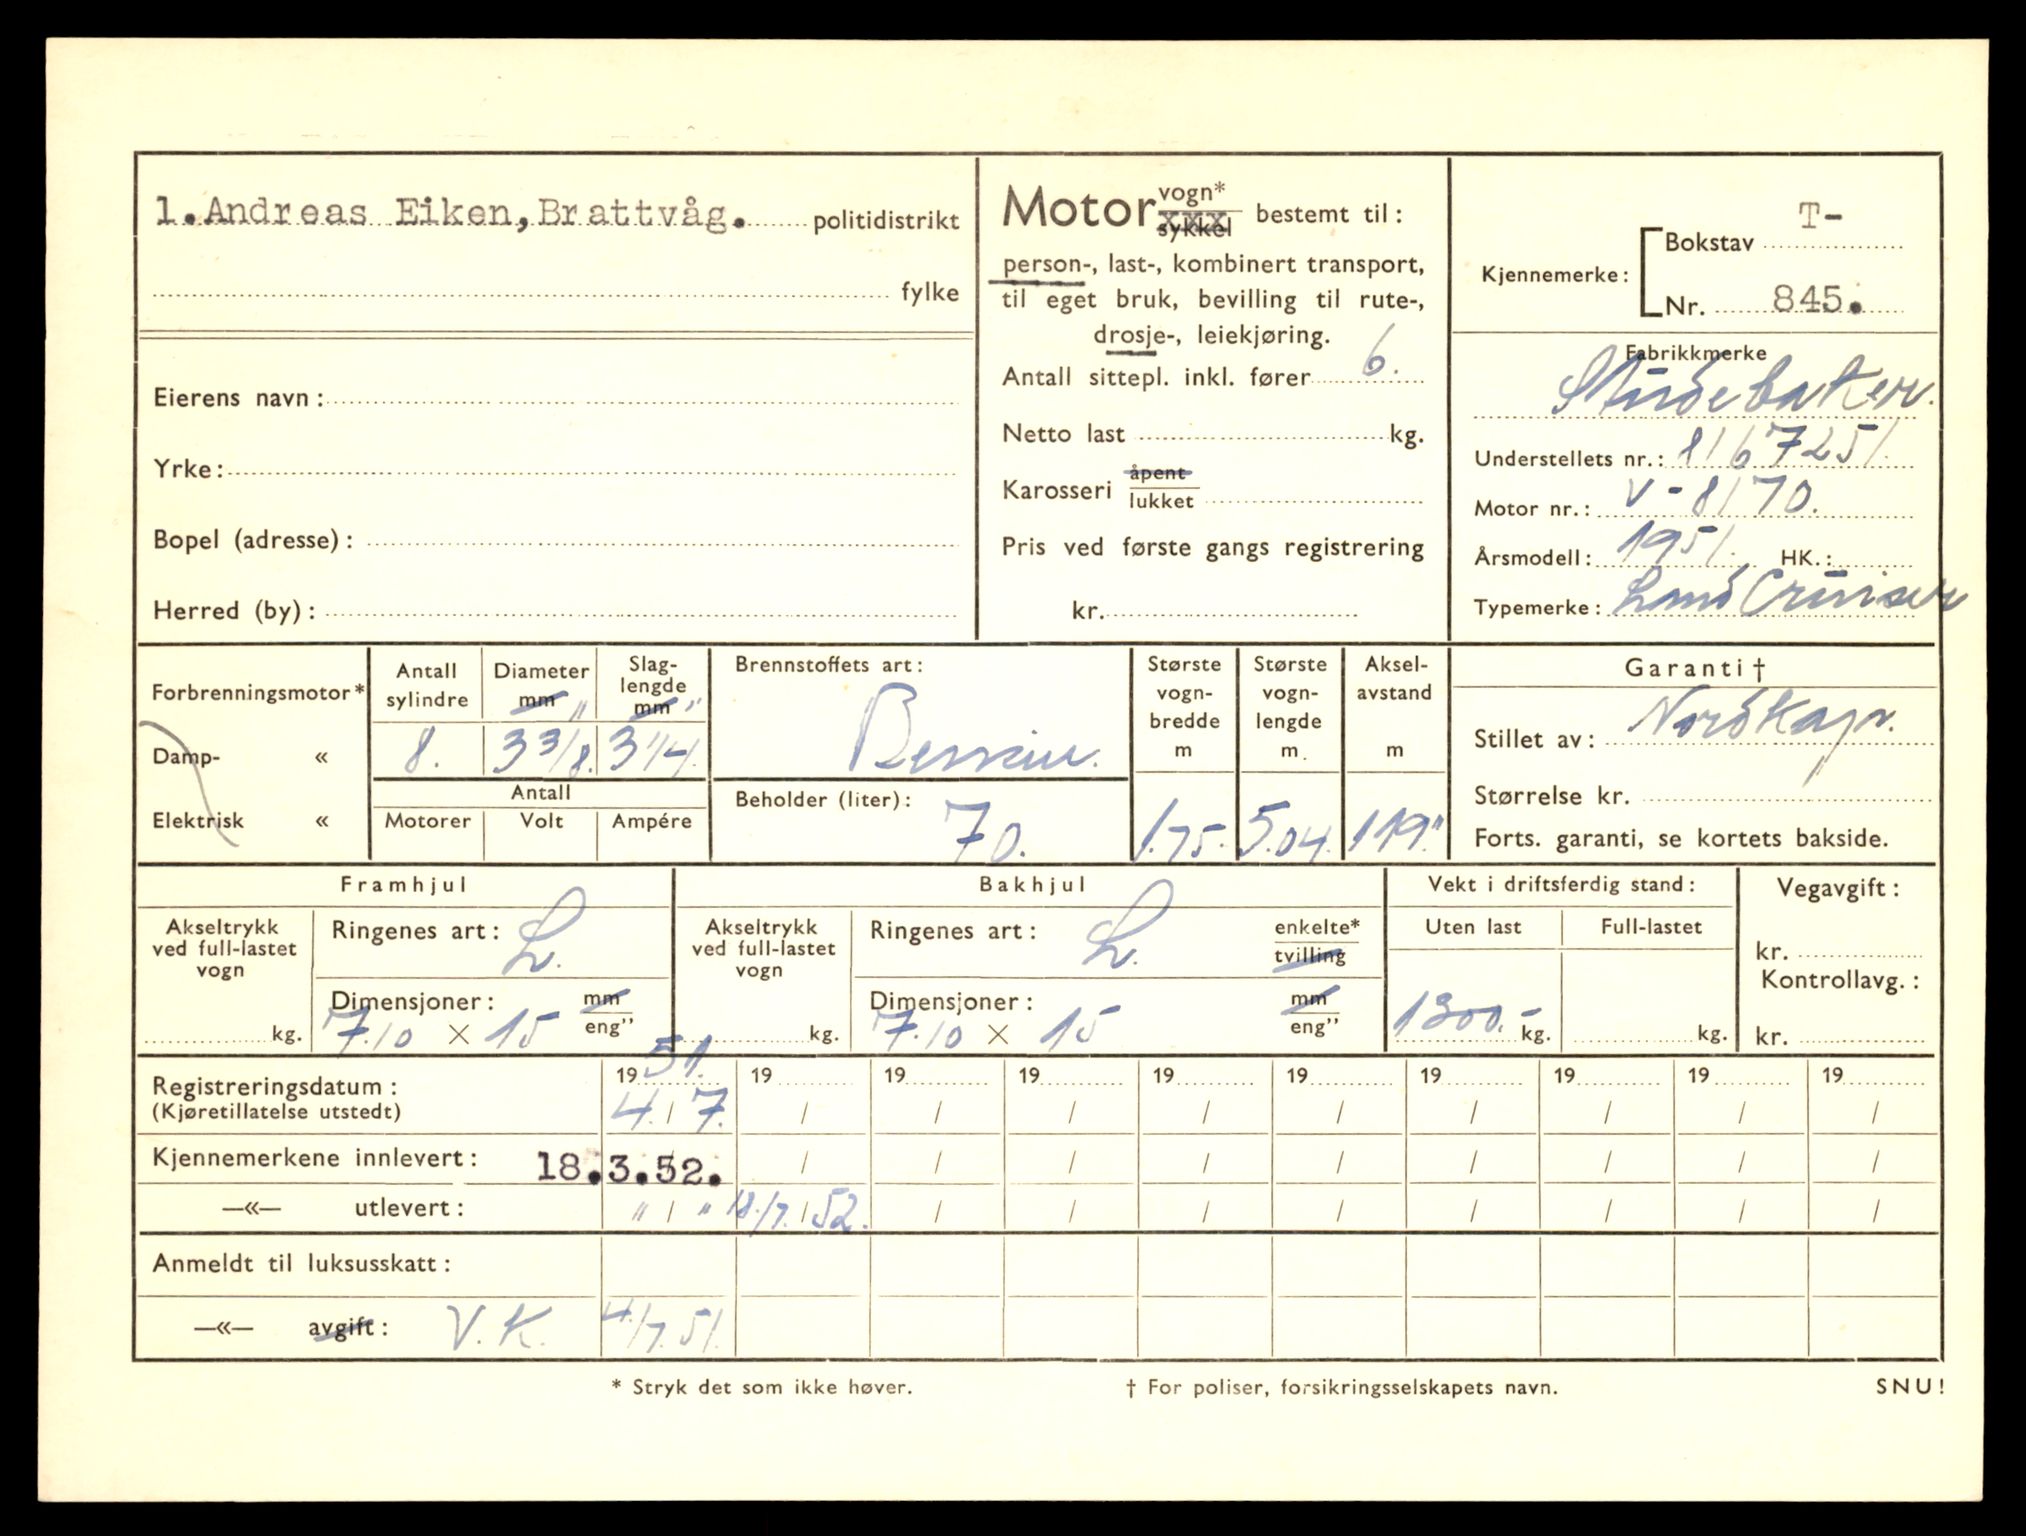 1.Andreas Eiken,Brattvåg. politidistrikt
fylke
Eierens navn:
Yrke:
Bopel (adresse):
Herred (by):
Motor vogn* sykkel bestemt til:
person-, last-, kombinert transport,
til eget bruk, bevilling til rute-,
drosje-, leiekjøring.
Antall sittepl. inkl. fører 6.
Netto last kg.
Karosseri åpent lukket
Pris ved første gangs registrering
kr.
Kjennemerke: Bokstav T-
Nr. 845.
Fabrikkmerke
Studebaker.
Understellets nr.: 8167251.
Motor nr.: V-8170.
Årsmodell: 1951. HK.:
Typemerke: Land Cruiser
Forbrenningsmotor*
Damp- «
Elektrisk «
Antall sylindre
8.
Diameter mm "
3 3/8.
Slag-lengde mm "
3 1/4.
Antall
Motorer Volt Ampére
Brennstoffets art:
Bensin.
Beholder (liter):
70.
Største vogn-bredde m
1.75.
Største vogn-lengde m.
5.04.
Aksel-avstand m
119"
Garanti †
Stillet av: Nordkapp.
Størrelse kr.
Forts. garanti, se kortets bakside.
Framhjul
Akseltrykk ved full-lastet vogn
kg.
Ringenes art: L.
Dimensjoner: mm eng"
7.10 × 15
Bakhjul
Akseltrykk ved full-lastet vogn
kg.
Ringenes art: L. enkelte* tvilling
Dimensjoner: mm eng"
7.10 × 15
Vekt i driftsferdig stand:
Uten last Full-lastet
1300.- kg. kg.
Vegavgift:
kr.
Kontrollavg.:
kr.
Registreringsdatum: 19 51. 19 19 19 19 19 19 19 19 19
(Kjøretillatelse utstedt) 4. / 7. / / / / / / / / /
Kjennemerkene innlevert: 18.3.52. / / / / / / / / /
—«— utlevert: " / " 18./7. / 52. / / / / / / / /
Anmeldt til luksusskatt:
—«— avgift: V.K. 4/7.51.
* Stryk det som ikke høver.
† For poliser, forsikringsselskapets navn.
SNU!